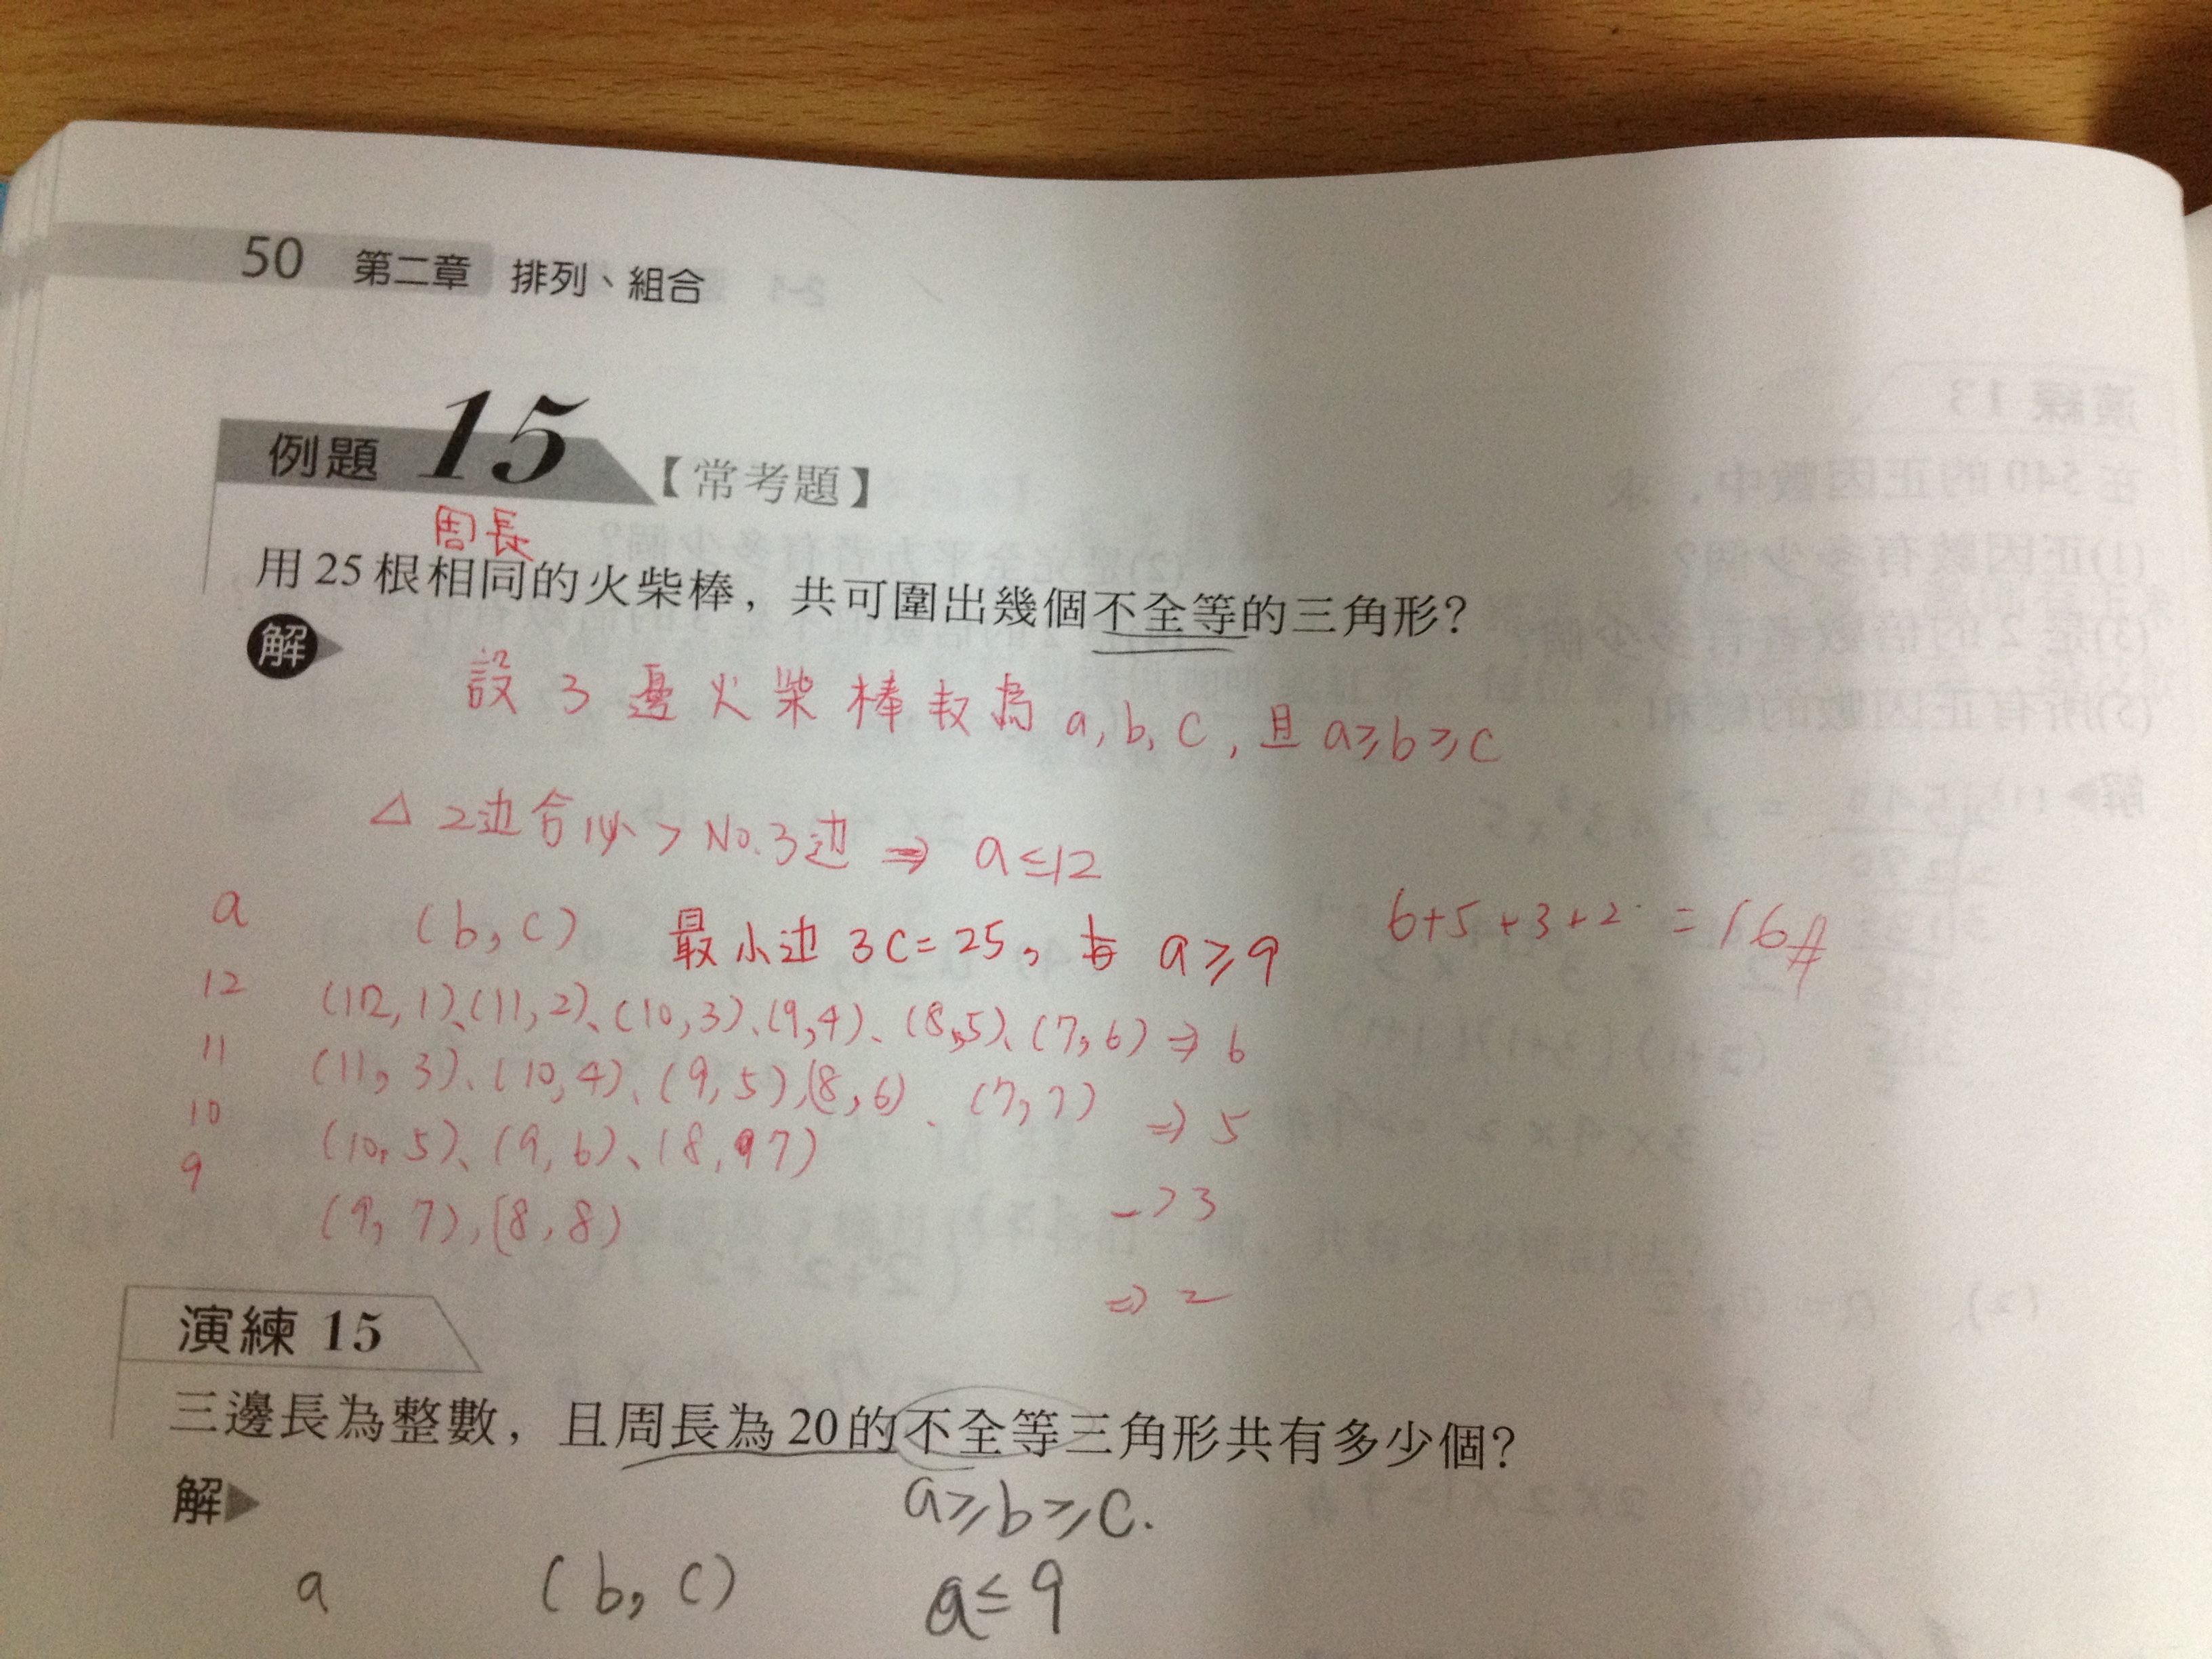 50 第二章 排列、組合
例題 15 【常考題】
周長
用25根相同的火柴棒，共可圍出幾個不全等的三角形？
解
設3邊火柴棒数為a, b, c, 且a≥b≥c
△ 2边合必 > No.3边 ⇒ a≤12
a (b, c) 最小边 3c=25, a≥9 6+5+3+2=16#
12 (12,1)、(11,2)、(10,3)、(9,4)、(8,5)、(7,6) ⇒ 6
11 (11,3)、(10,4)、(9,5)、(8,6)、(7,7) ⇒ 5
10 (10,5)、(9,6)、(8,7) -> 3
9 (9,7),(8,8) ⇒ 2
演練 15
三邊長為整數，且周長為20的不全等三角形共有多少個？
解
a≥b≥c.
a (b, c) a≤9